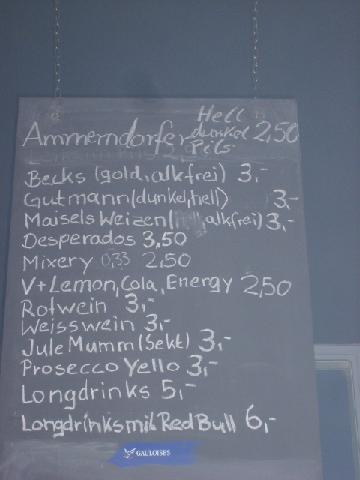 Hell
Ammerndorfer dunkel 2,50
Pils
Becks (gold, alkfrei) 3,-
Gutmann (dunkel, hell) 3,-
Maisels Weizen ( alkfrei) 3,-
Desperados 3,50
Mixery 0,33 2,50
V+Lemon, Cola, Energy 2,50
Rotwein 3,-
Weisswein 3,-
Jule Mumm (Sekt) 3,-
Prosecco Yello 3,-
Longdrinks 5,-
Longdrinks mit Red Bull 6,-
GAULOISES